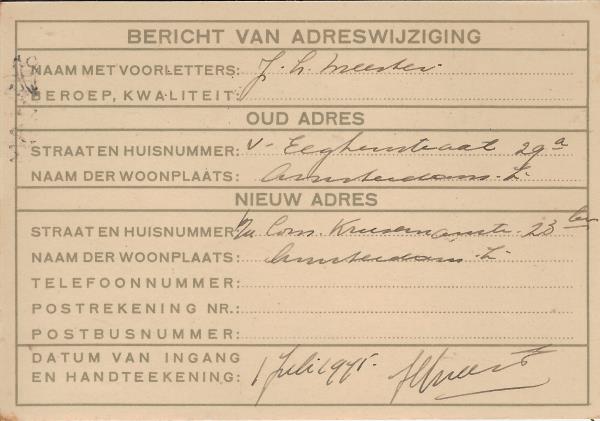 BERICHT VAN ADRESWIJZIGING
NAAM MET VOORLETTERS: J. H. Meester.
BEROEP, KWALITEIT:
OUD ADRES
STRAAT EN HUISNUMMER: v. Eeghenstraat 29a
NAAM DER WOONPLAATS: Amsterdam. Z.
NIEUW ADRES
STRAAT EN HUISNUMMER: Corn. Krusemanstr. 23
NAAM DER WOONPLAATS: Amsterdam. Z.
TELEFOONNUMMER:
POSTREKENING NR.:
POSTBUSNUMMER:
DATUM VAN INGANG
EN HANDTEEKENING: 1 Juli